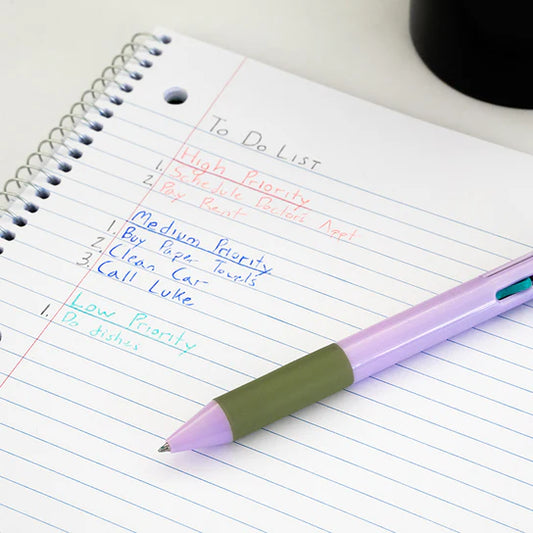 To Do List
High Priority
1. Schedule Doctors Appt
2. Pay Rent
Medium Priority
1. Buy Paper Towels
2. Clean Car
3. Call Luke
Low Priority
1. Do dishes